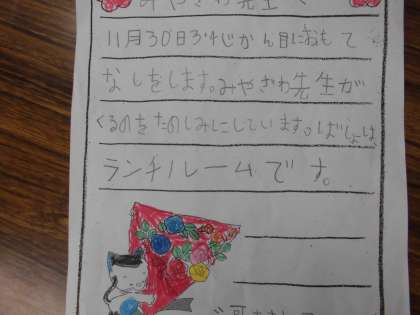 みやざわ先生へ
11月30日3、4じかん目におもて
なしをします。みやざわ先生が
くるのをたのしみにしています。ばしょは、
ランチルームです。